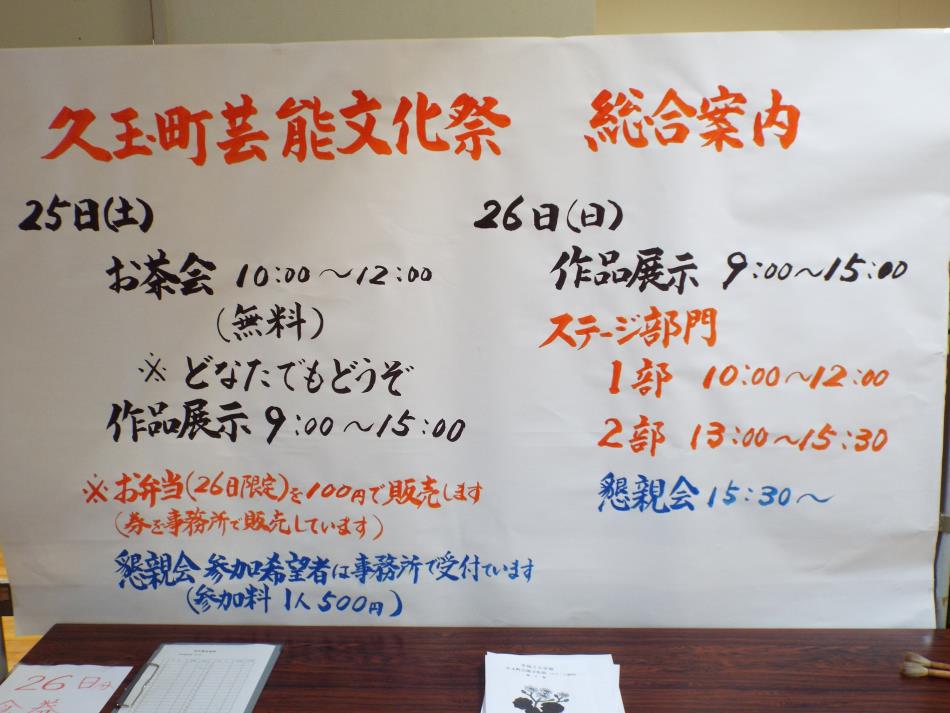 久玉町芸能文化祭 総合案内
25日(土)
お茶会 10:00～12:00
(無料)
※ どなたでもどうぞ
作品展示 9:00～15:00
※お弁当(26日限定)を100円で販売します
(券を事務所で販売しています)
懇親会 参加希望者は事務所で受付ています
(参加料 1人 500円)
26日(日)
作品展示 9:00～15:00
ステージ部門
1部 10:00～12:00
2部 13:00～15:30
懇親会 15:30～
26日